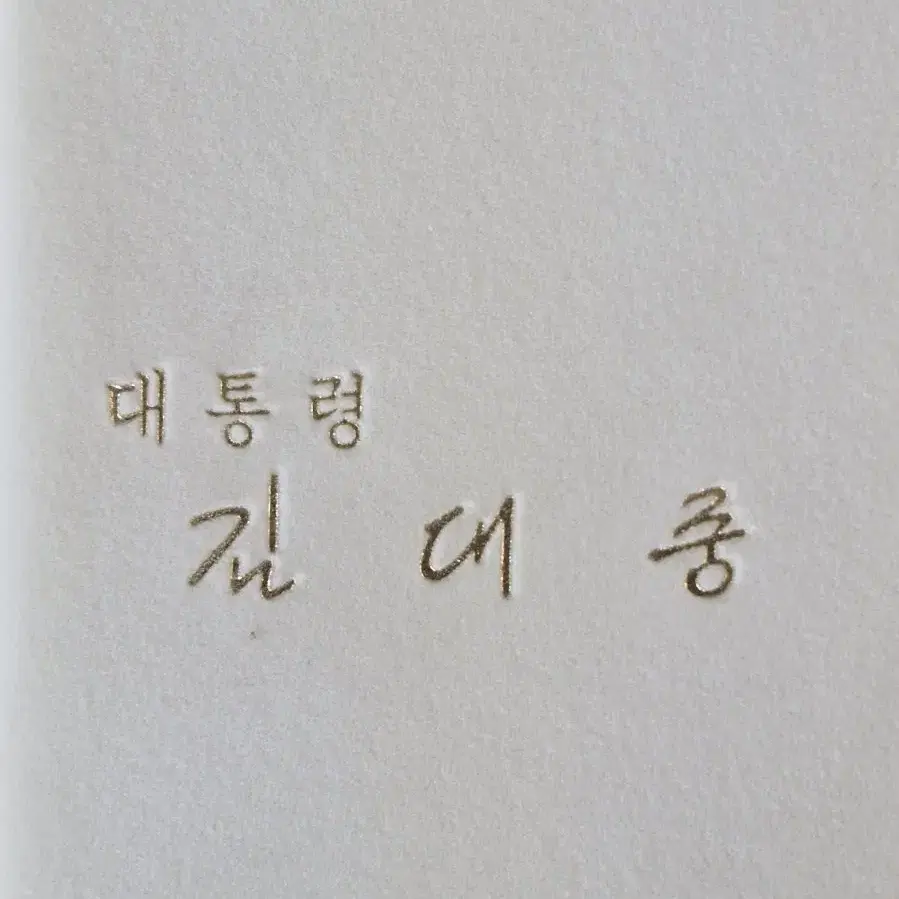 대통령
김대중